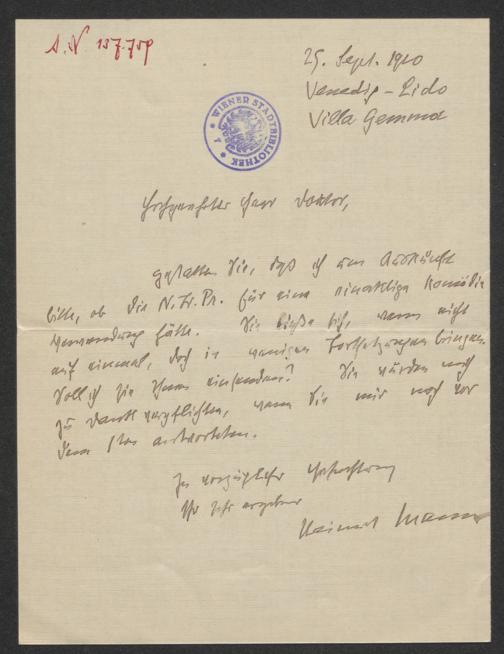 J. N. 137.759
25. Sept. 1910
Venedig - Lido
Villa Gemma
WIENER STADTBIBLIOTHEK
Hochgeehrter Herr Doktor,
gestatten Sie, daß ich um Auskunft
bitte, ob die N. Fr. Pr. für eine einaktige Komödie
Verwendung hätte. Sie ließe sich, wenn nicht
auf einmal, doch in wenigen Fortsetzungen bringen.
Soll ich sie Ihnen einsenden? Sie würden mich
zu Dank verpflichten, wenn Sie mir noch vor
dem 1ten antworteten.
In vorzüglicher Hochachtung
Ihr sehr ergebener
Heinrich Mann